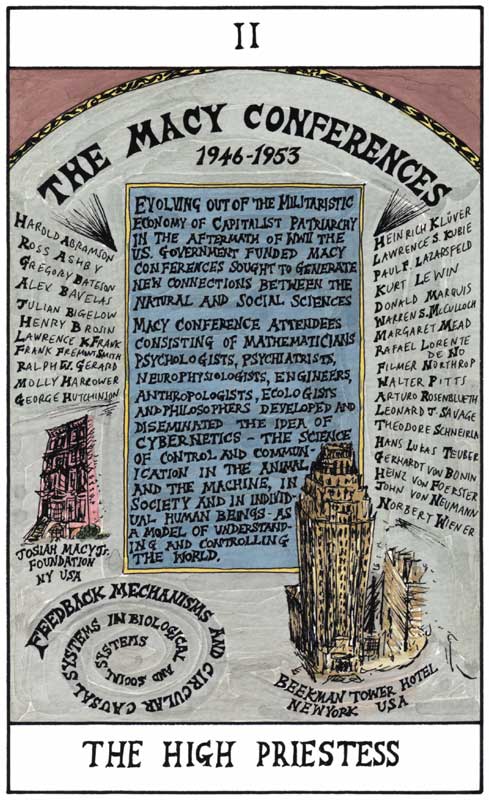 II
THE MACY CONFERENCES
1946-1953
HAROLD ABRAMSON
ROSS ASHBY
GREGORY BATESON
ALEX BAVELAS
JULIAN BIGELOW
HENRY BROSIN
LAWRENCE K FRANK
FRANK FREMONT SMITH
RALPH W. GERARD
MOLLY HARROWER
GEORGE HUTCHINSON
EVOLVING OUT OF THE MILITARISTIC
ECONOMY OF CAPITALIST PATRIARCHY
IN THE AFTERMATH OF WWII THE
U.S. GOVERNMENT FUNDED MACY
CONFERENCES SOUGHT TO GENERATE
NEW CONNECTIONS BETWEEN THE
NATURAL AND SOCIAL SCIENCES
MACY CONFERENCE ATTENDEES
CONSISTING OF MATHEMATICIANS
PSYCHOLOGISTS, PSYCHIATRISTS,
NEUROPHYSIOLOGISTS, ENGINEERS,
ANTHROPOLOGISTS, ECOLOGISTS
AND PHILOSOPHERS DEVELOPED AND
DISEMINATED THE IDEA OF
CYBERNETICS - THE SCIENCE
OF CONTROL AND COMMUN-
ICATION IN THE ANIMAL
AND THE MACHINE, IN
SOCIETY AND IN INDIVID-
UAL HUMAN BEINGS - AS
A MODEL OF UNDERSTAND-
ING AND CONTROLLING
THE WORLD.
HEINRICH KLÜVER
LAWRENCE S. KUBIE
PAUL F. LAZARSFELD
KURT LEWIN
DONALD MARQUIS
WARREN S. MCCULLOCH
MARGARET MEAD
RAFAEL LORENTE
DE NO
FILMER NORTHROP
WALTER PITTS
ARTURO ROSENBLUETH
LEONARD J. SAVAGE
THEODORE SCHNEIRLA
HANS LUKAS TEUBER
GERHARDT VON BONIN
HEINZ VON FOERSTER
JOHN VON NEUMANN
NORBERT WIENER
JOSIAH MACY JR.
FOUNDATION
NY USA
FEEDBACK MECHANISMS AND
CIRCULAR CAUSAL SYSTEMS IN BIOLOGICAL
AND SOCIAL SYSTEMS
BEEKMAN TOWER HOTEL
NEW YORK USA
THE HIGH PRIESTESS